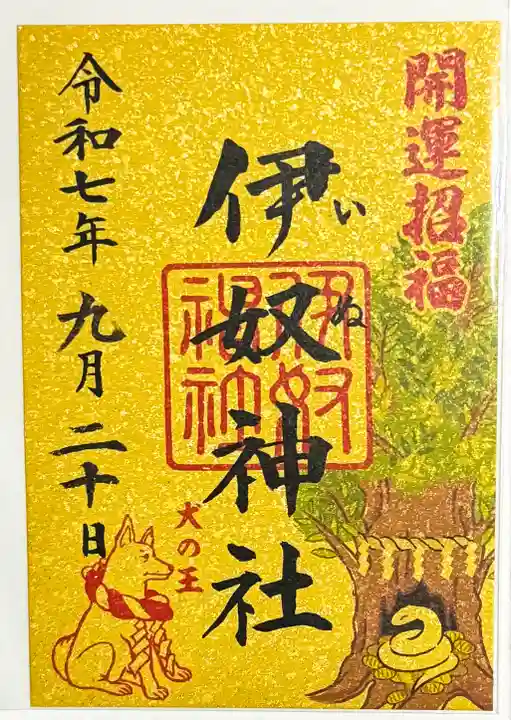 開運招福
伊奴神社
いぬ
伊奴
神社
犬の王
令和七年九月二十日